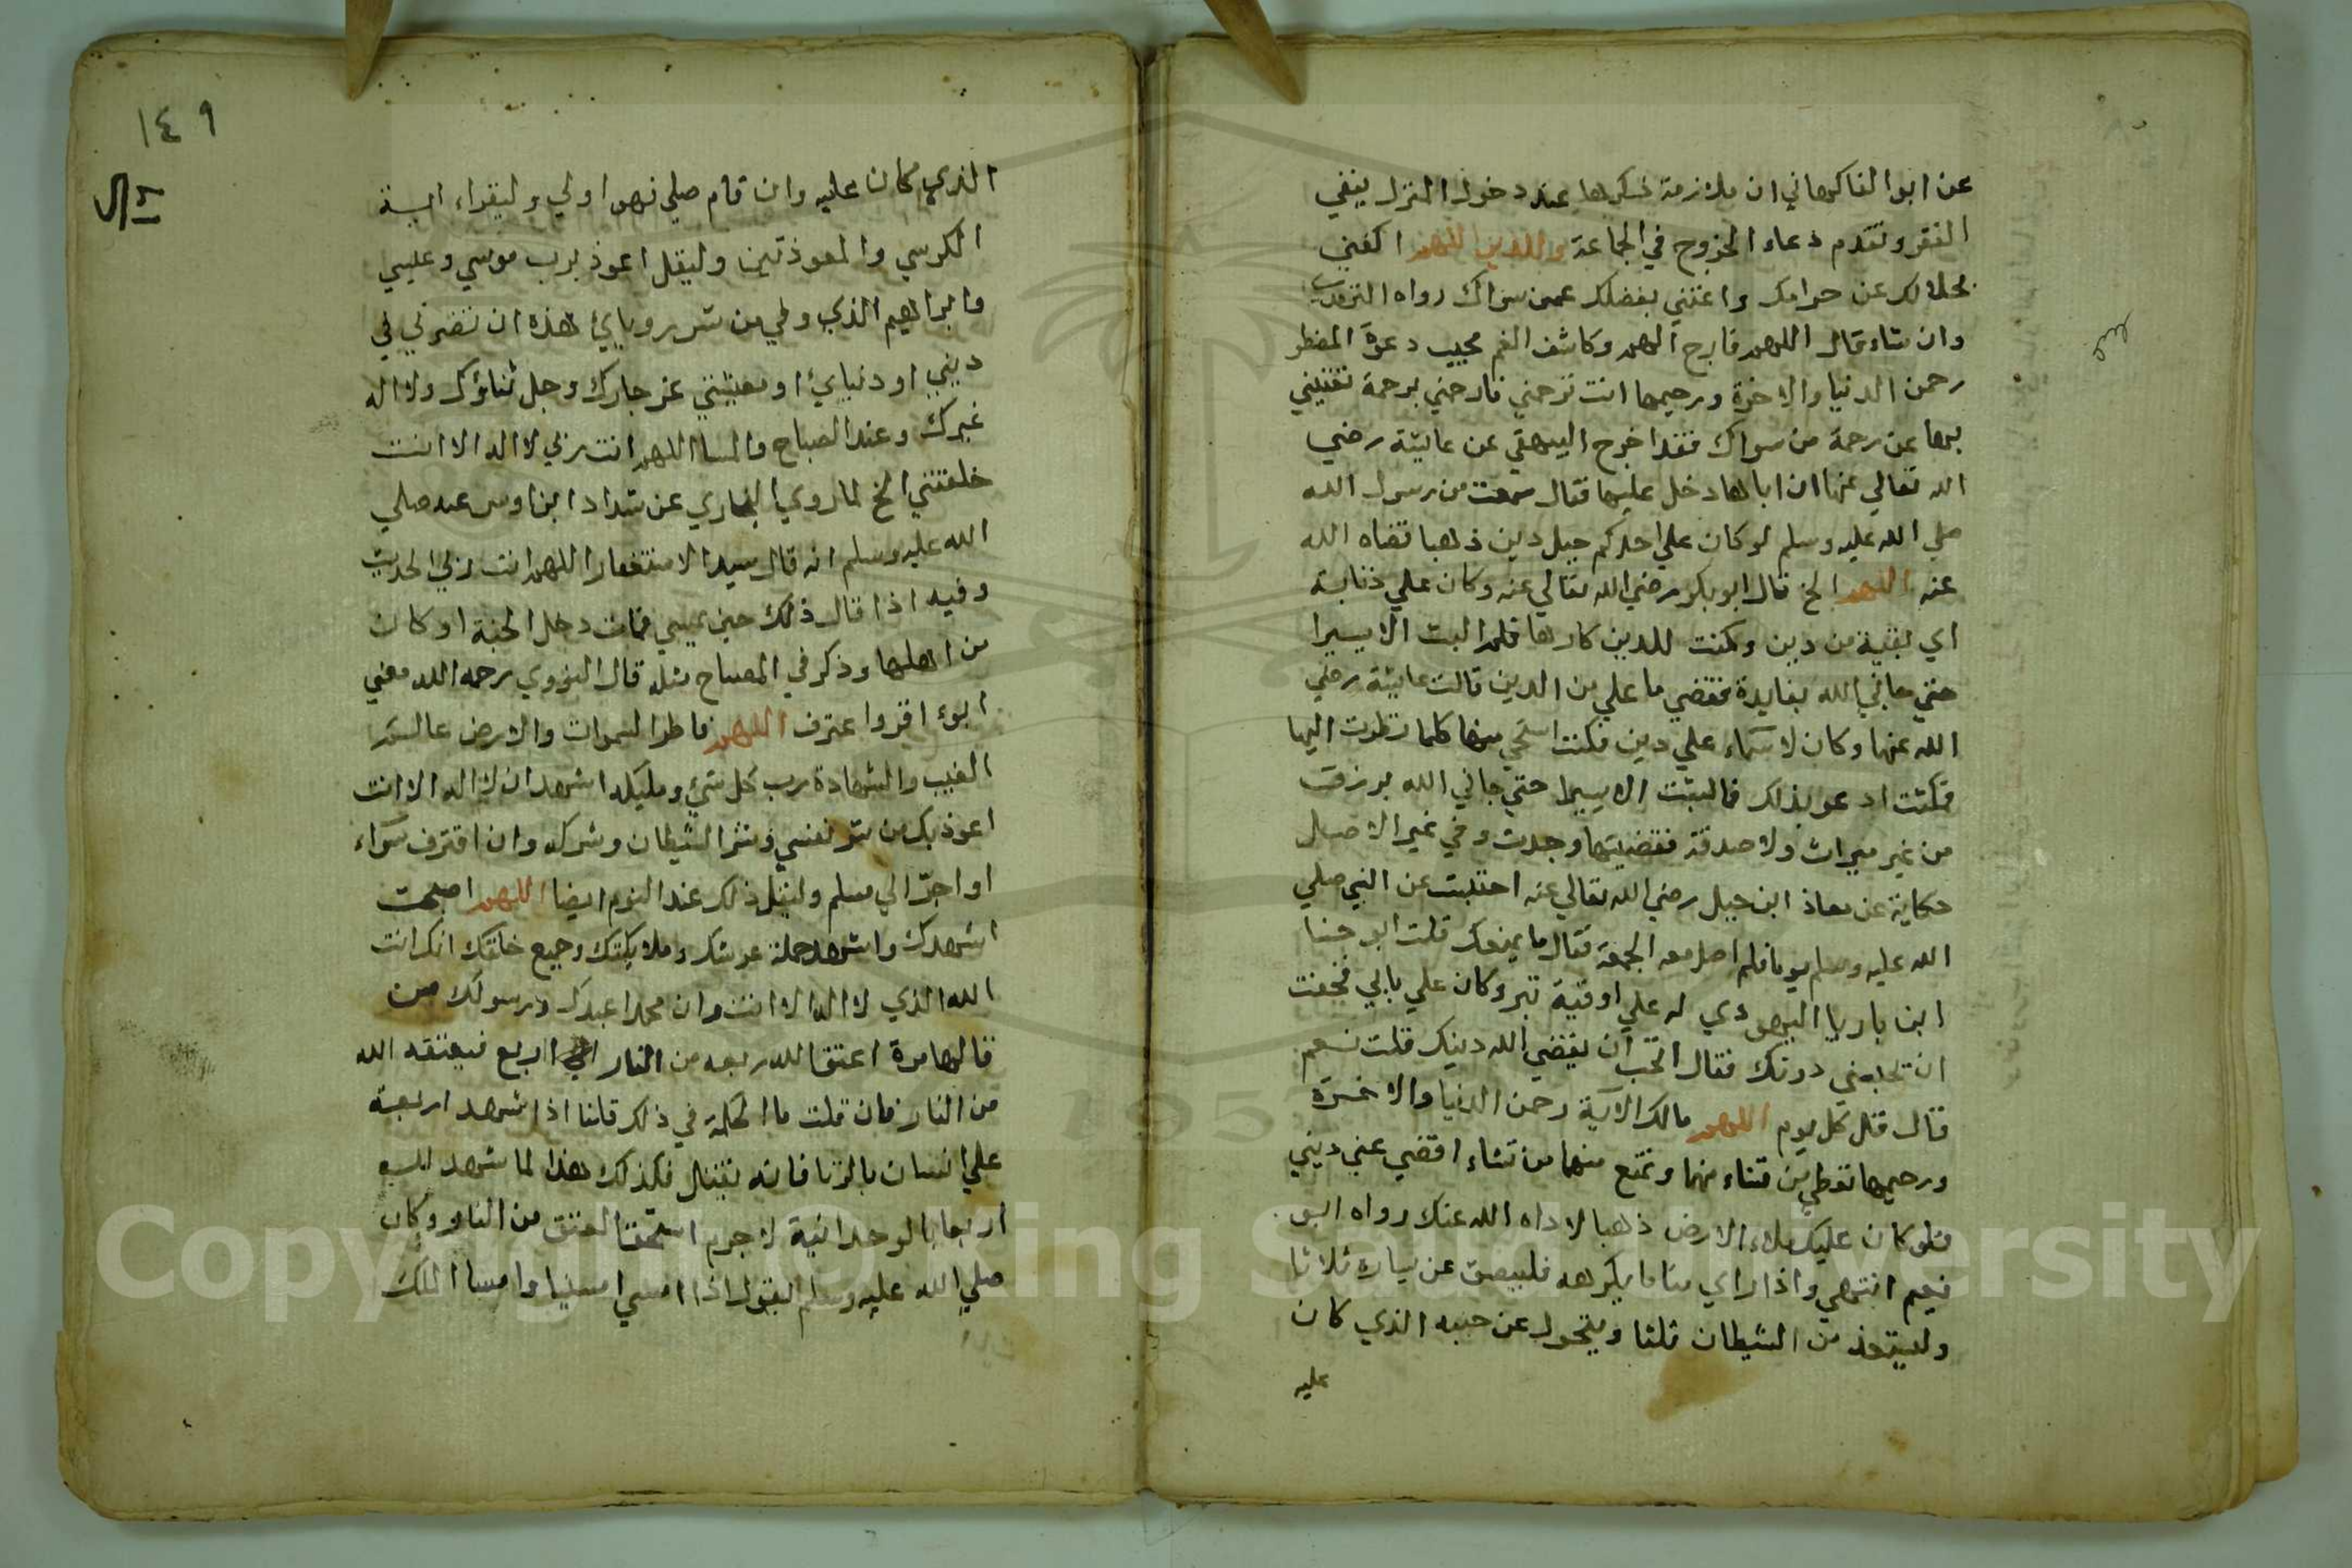 عن ابوا الفاكهاني ان ملازمة ذكرها عند دخول المنزل ينفي
الفقر وتقدم دعاء الخروج في الجماعة وللدين اللهم اكفني
بحلالك عن حرامك واغنني بفضلك عمن سواك رواه الترمذي
وان شاء قال اللهم فارج الهم وكاشف الغم مجيب دعوة المضطر
رحمن الدنيا والاخرة ورحيمها انت ترحمني فارحمني برحمة تغنيني
بها عن رحمة من سواك فقد اخرج البيهقي عن عايشة رضي
الله تعالي عنها ان اباها دخل عليها فقال سمعت من رسول الله
صلي الله عليه وسلم لو كان علي احدكم جبل دين ذهبا قضاه الله
عنه اللهم الخ قال ابو بكر رضي الله تعالي عنه وكان علي ذنابة
اي بقية من دين وكنت للدين كارها فلم البث الا يسيرا
حتي جاني الله بفايدة فقضي ما علي من الدين قالت عايشة رضي
الله عنها وكان لاسماء علي دين فكنت استحي منها كلما نظرت اليها
فكنت ادعو بذلك فما لبثت الا يسيرا حتي جاني الله برزق
من غير ميراث ولا صدقة فقضيتها وجدت وفي غير الاصل
حكاية عن معاذ ابن جبل رضي الله تعالي عنه احتبست عن النبي صلي
الله عليه وسلم يوما فلم اصل معه الجمعة فقال ما يمنعك قلت ابو حنا
ابن باريا اليهودي له علي اوقية تبر وكان علي بابي فخفت
ان تحبسني دونك فقال اتحب ان يقضي الله دينك قلت نعم
قال قل كل يوم اللهم مالك الاية رحمن الدنيا والاخرة
ورحيمها تعطي من تشاء منها وتمنع منها من تشاء اقضي عني ديني
فلو كان عليك ملاء الارض ذهبا لاداه الله عنك رواه ابو
نعيم انتهي واذا راي مناما يكرهه فليبصق عن يساره ثلاثا
وليتعوذ من الشيطان ثلثا ويتحول عن جنبه الذي كان
عليه
١٤٩
الذي كان عليه وان قام صلي فهو اولي وليقراء اية
الكرسي والمعوذتين وليقل اعوذ برب موسي وعيسي
وابراهيم الذي وفي من شر روياي هذه ان تضرني في
ديني او دنياي او معيشتي عز جارك وجل ثناؤك ولا اله
غيرك وعند الصباح والمسا اللهم انت ربي لا اله الا انت
خلقتني الخ لما روي البخاري عن شداد ابن اوس عنه صلي
الله عليه وسلم انه قال سيد الاستغفار اللهم انت ربي الحديث
وفيه اذا قال ذلك حين يمسي فمات دخل الجنة او كان
من اهلها وذكر في المصباح مثله قال النووي رحمه الله معني
ابوء اقر واعترف اللهم فاطر السموات والارض عالم
الغيب والشهادة رب كل شيء ومليكه اشهد ان لا اله الا انت
اعوذ بك من شر نفسي وشر الشيطان وشركه وان اقترف سواء
او اجره الي مسلم وليقل ذلك عند النوم ايضا اللهم اصبحت
اشهدك واشهد حملة عرشك وملايكتك وجميع خلقك انك انت
الله الذي لا اله الا انت وان محمدا عبدك ورسولك من
قالها مرة اعتق الله ربعه من النار الي اربع فيعتقه الله
من النار فان قلت ما الحكمة في ذلك قلنا اذا شهد اربعة
علي انسان بالزنا فانه يقتل فكذلك هذا لما شهد لله
اربعا بالوحدانية لا جرم استحق العتق من النار وكان
صلي الله عليه وسلم يقول اذا امسي امسينا وامسا الملك